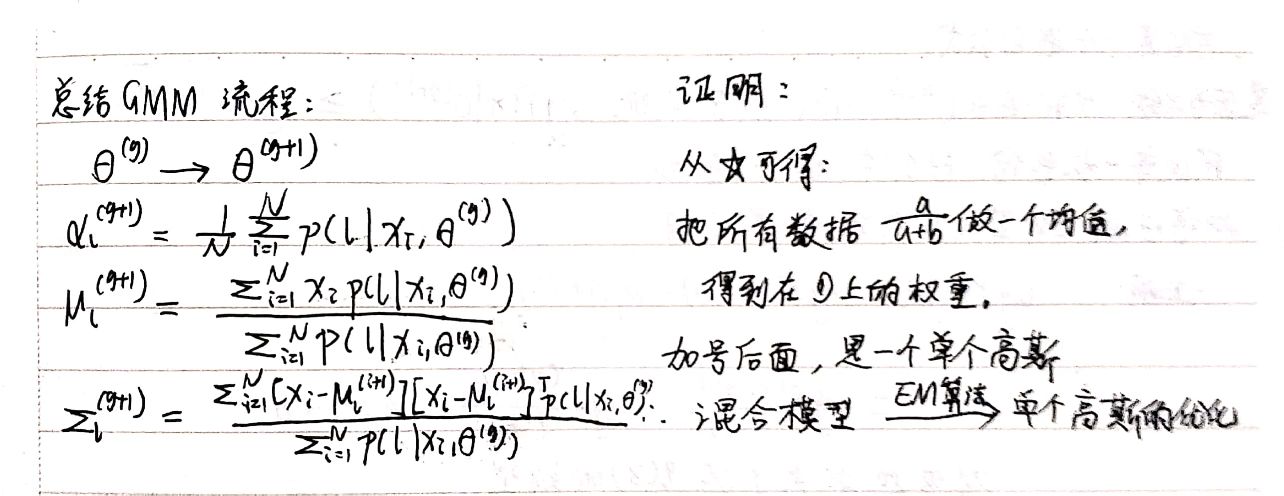 总结GMM 流程：
θ^(g) → θ^(g+1)
α_l^(g+1) = 1/N Σ_{i=1}^N p(l|x_i, θ^(g))
μ_l^(g+1) = Σ_{i=1}^N x_i p(l|x_i, θ^(g)) / Σ_{i=1}^N p(l|x_i, θ^(g))
Σ_l^(g+1) = Σ_{i=1}^N [x_i-μ_l^(i+1)][x_i-μ_l^(i+1)]^T p(l|x_i, θ^(g)) / Σ_{i=1}^N p(l|x_i, θ^(g)).
证明：
从☆可得：
把所有数据 a/(a+b) 做一个均值，
得到在①上的权重。
加号后面，是一个单个高斯
混合模型 EM算法→ 单个高斯的优化